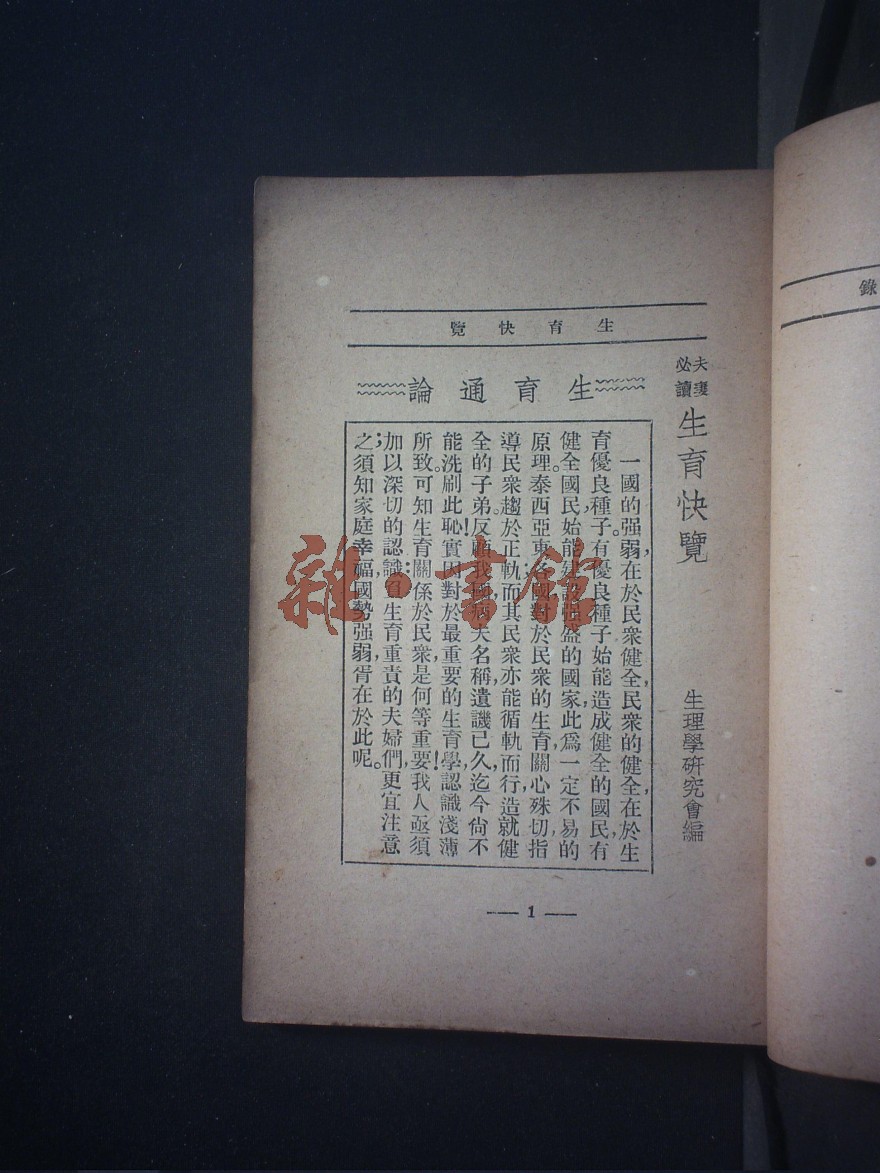 生育快覽
夫妻必讀 生育快覽 生理學研究會編
生育通論
一國的强弱，在於民衆健全，民衆的健全，在於生
育優良種子，有優良種子，始能造成健全的國民，有
健全國民，始能建設强盛的國家，此爲一定不易的
原理。泰西亞東各國，對於民衆的生育，關心殊切，指
導民衆趨於正軌，而其民衆亦能循軌而行，造就健
全的子弟。反顧我國，病夫名稱，遺譏已久，迄今尙不
能洗刷此恥！實因對於最重要的生育學，認識淺薄
所致。可知生育關係於民衆是何等重要！我人亟須
加以深切的認識；負生育重責的夫婦們，更宜注意
之，須知家庭幸福，國勢强弱，胥在於此呢。
— 1 —
錄
雜·書館